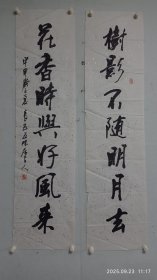 樹影不随明月去
花香時與好風来
2025.09.23 11:17